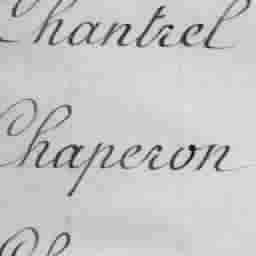 Chantrel
Chaperon